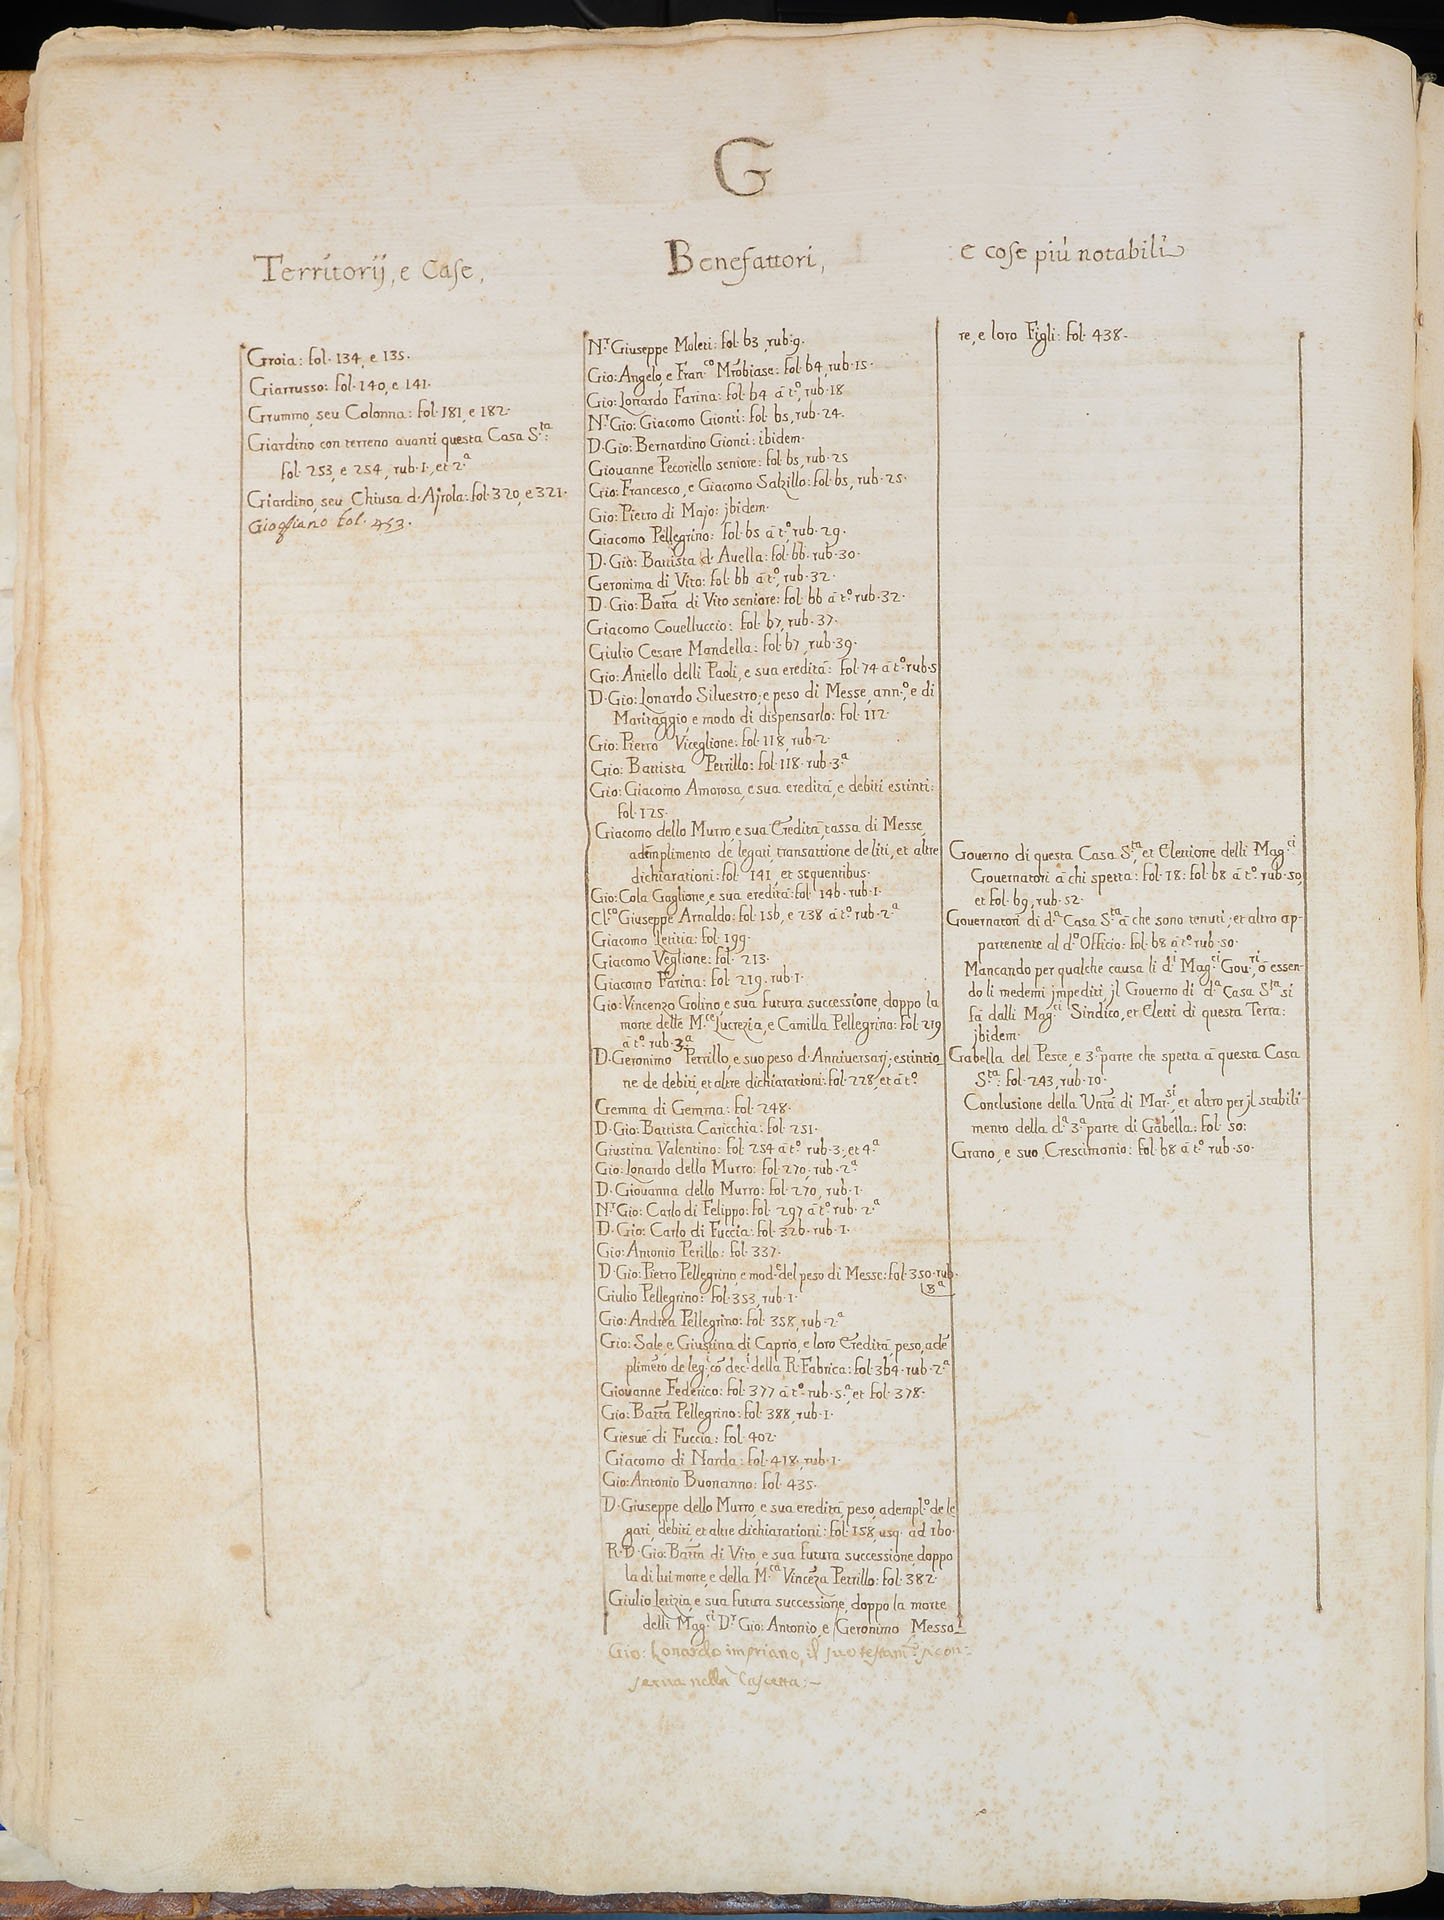 G
Territorij, e Case,
Benefattori,
e cose più notabili
Groia: fol. 134, e 135.
Giarrusso: fol. 140, e 141.
Grummo, seu Colonna: fol. 181, e 182.
Giardino con terreno auanti questa Casa S.ta:
fol. 253, e 254, rub. 1., et 2.a
Giardino, seu Chiusa d'Ajrola: fol. 320, e 321.
Giogliano fol. 453.
N.r Giuseppe Moleti: fol. 63, rub. 9.
Gio: Angelo, e Fran.co Mrobiase: fol. 64, rub. 15.
Gio: Lonardo Farina: fol. 64 à t.o, rub. 18
N.r Gio: Giacomo Gionti: fol. 65, rub. 24.
D. Gio: Bernardino Gionti: ibidem.
Giouanne Pecoriello seniore: fol. 65, rub. 25
Gio: Francesco, e Giacomo Salzillo: fol. 65, rub. 25.
Gio: Pietro di Majo: jbidem.
Giacomo Pellegrino: fol. 65 à t.o, rub. 29.
D. Gio: Battista d'Auella: fol. 66. rub. 30.
Geronima di Vito: fol. 66 à t.o, rub. 32.
D. Gio: Batta di Vito seniore: fol. 66 à t.o rub. 32.
Giacomo Couelluccio: fol. 67, rub. 37.
Giulio Cesare Mandella: fol. 67, rub. 39.
Gio: Aniello delli Paoli, e sua eredità: fol. 74 à t.o rub. 5
D. Gio: Lonardo Siluestro, e peso di Messe, ann.o, e di
Maritaggio, e modo di dispensarlo: fol. 112.
Gio: Pietro Viceglione: fol. 118, rub. 2.
Gio: Battista Petrillo: fol. 118. rub. 3.a
Gio: Giacomo Amorosa, e sua eredità, e debiti estinti:
fol. 125.
Giacomo dello Murro, e sua Eredità, tassa di Messe,
adēplimento de legati, transattione de liti, et altre
dichiarationi: fol. 141, et sequentibus.
Gio: Cola Gaglione, e sua eredità: fol. 146. rub. 1.
Cl.co Giuseppe Arnaldo: fol. 156, e 238 à t.o rub. 2.a
Giacomo Letitia: fol. 199.
Giacomo Veglione: fol. 213.
Giacomo Farina: fol. 219. rub. 1.
Gio: Vincenzo Golino, e sua futura successione, doppo la
morte delle M.ce Lucrezia, e Camilla Pellegrino: fol. 219
à t.o rub. 3.a
D. Geronimo Petrillo, e suo peso d'Anniuersarj, estintio-
ne de debiti, et altre dichiarationi: fol. 228, et à t.o
Gemma di Gemma: fol. 248.
D. Gio: Battista Caricchia: fol. 251.
Giustina Valentino: fol. 254 à t.o rub. 3., et 4.a
Gio: Lonardo dello Murro: fol. 270, rub. 2.a
D. Giouanna dello Murro: fol. 270, rub. 1.
N.r Gio: Carlo di Felippo: fol. 297 à t.o rub. 2.a
D. Gio: Carlo di Fuccia: fol. 326. rub. 1.
Gio: Antonio Perillo: fol. 337.
D. Gio: Pietro Pellegrino, e mod.o del peso di Messe: fol. 350. rub.
8.a
Giulio Pellegrino: fol. 353, rub. 1.
Gio: Andrea Pellegrino: fol. 358, rub. 2.a
Gio: Sole, e Giustina di Caprio, e loro Eredità, peso, adē
plimēto de leg.i, cō dec.i della R. Fabrica: fol. 364. rub. 2.a
Giouanne Federico: fol. 377 à t.o rub. 5.a, et fol. 378.
Gio: Batta Pellegrino: fol. 388, rub. 1.
Giesuè di Fuccia: fol. 402.
Giacomo di Narda: fol. 418, rub. 1.
Gio: Antonio Buonanno: fol. 435.
D. Giuseppe dello Murro, e sua eredità, peso, adempl.o de le
gati, debiti, et altre dichiarationi: fol. 158, usq. ad 160.
R. D. Gio: Batta di Vito, e sua futura successione, doppo
la di lui morte, e della M.ca Vincēza Petrillo: fol. 382.
Giulio Letizia, e sua futura successione, doppo la morte
delli Mag.ci D.r Gio: Antonio, e Geronimo Messo-
Gio: Lonardo impriano, il suo testam.to si con-
serua nella Cascetta:—
re, e loro Figli: fol. 438.
Gouerno di questa Casa S.ta, et Elettione delli Mag.ci
Gouernatori à chi spetta: fol. 18: fol. 68 à t.o rub. 50,
et fol. 69, rub. 52.
Gouernatori di d.a Casa S.ta à che sono tenuti, et altro ap-
partenente al d.o Officio: fol. 68 à t.o rub. 50.
Mancando per qualche causa li d.i Mag.ci Gou.ri, ò essen-
do li medemi jmpediti, jl Gouerno di d.a Casa S.ta si
fà dalli Mag.ci Sindico, et Eletti di questa Terra:
jbidem.
Gabella del Pesce, e 3.a parte che spetta à questa Casa
S.ta: fol. 243, rub. 10.
Conclusione della Untà di Mar.si, et altro per jl stabili-
mento della d.a 3.a parte di Gabella: fol. 50:
Grano, e suo Crescimonio: fol. 68 à t.o rub. 50.